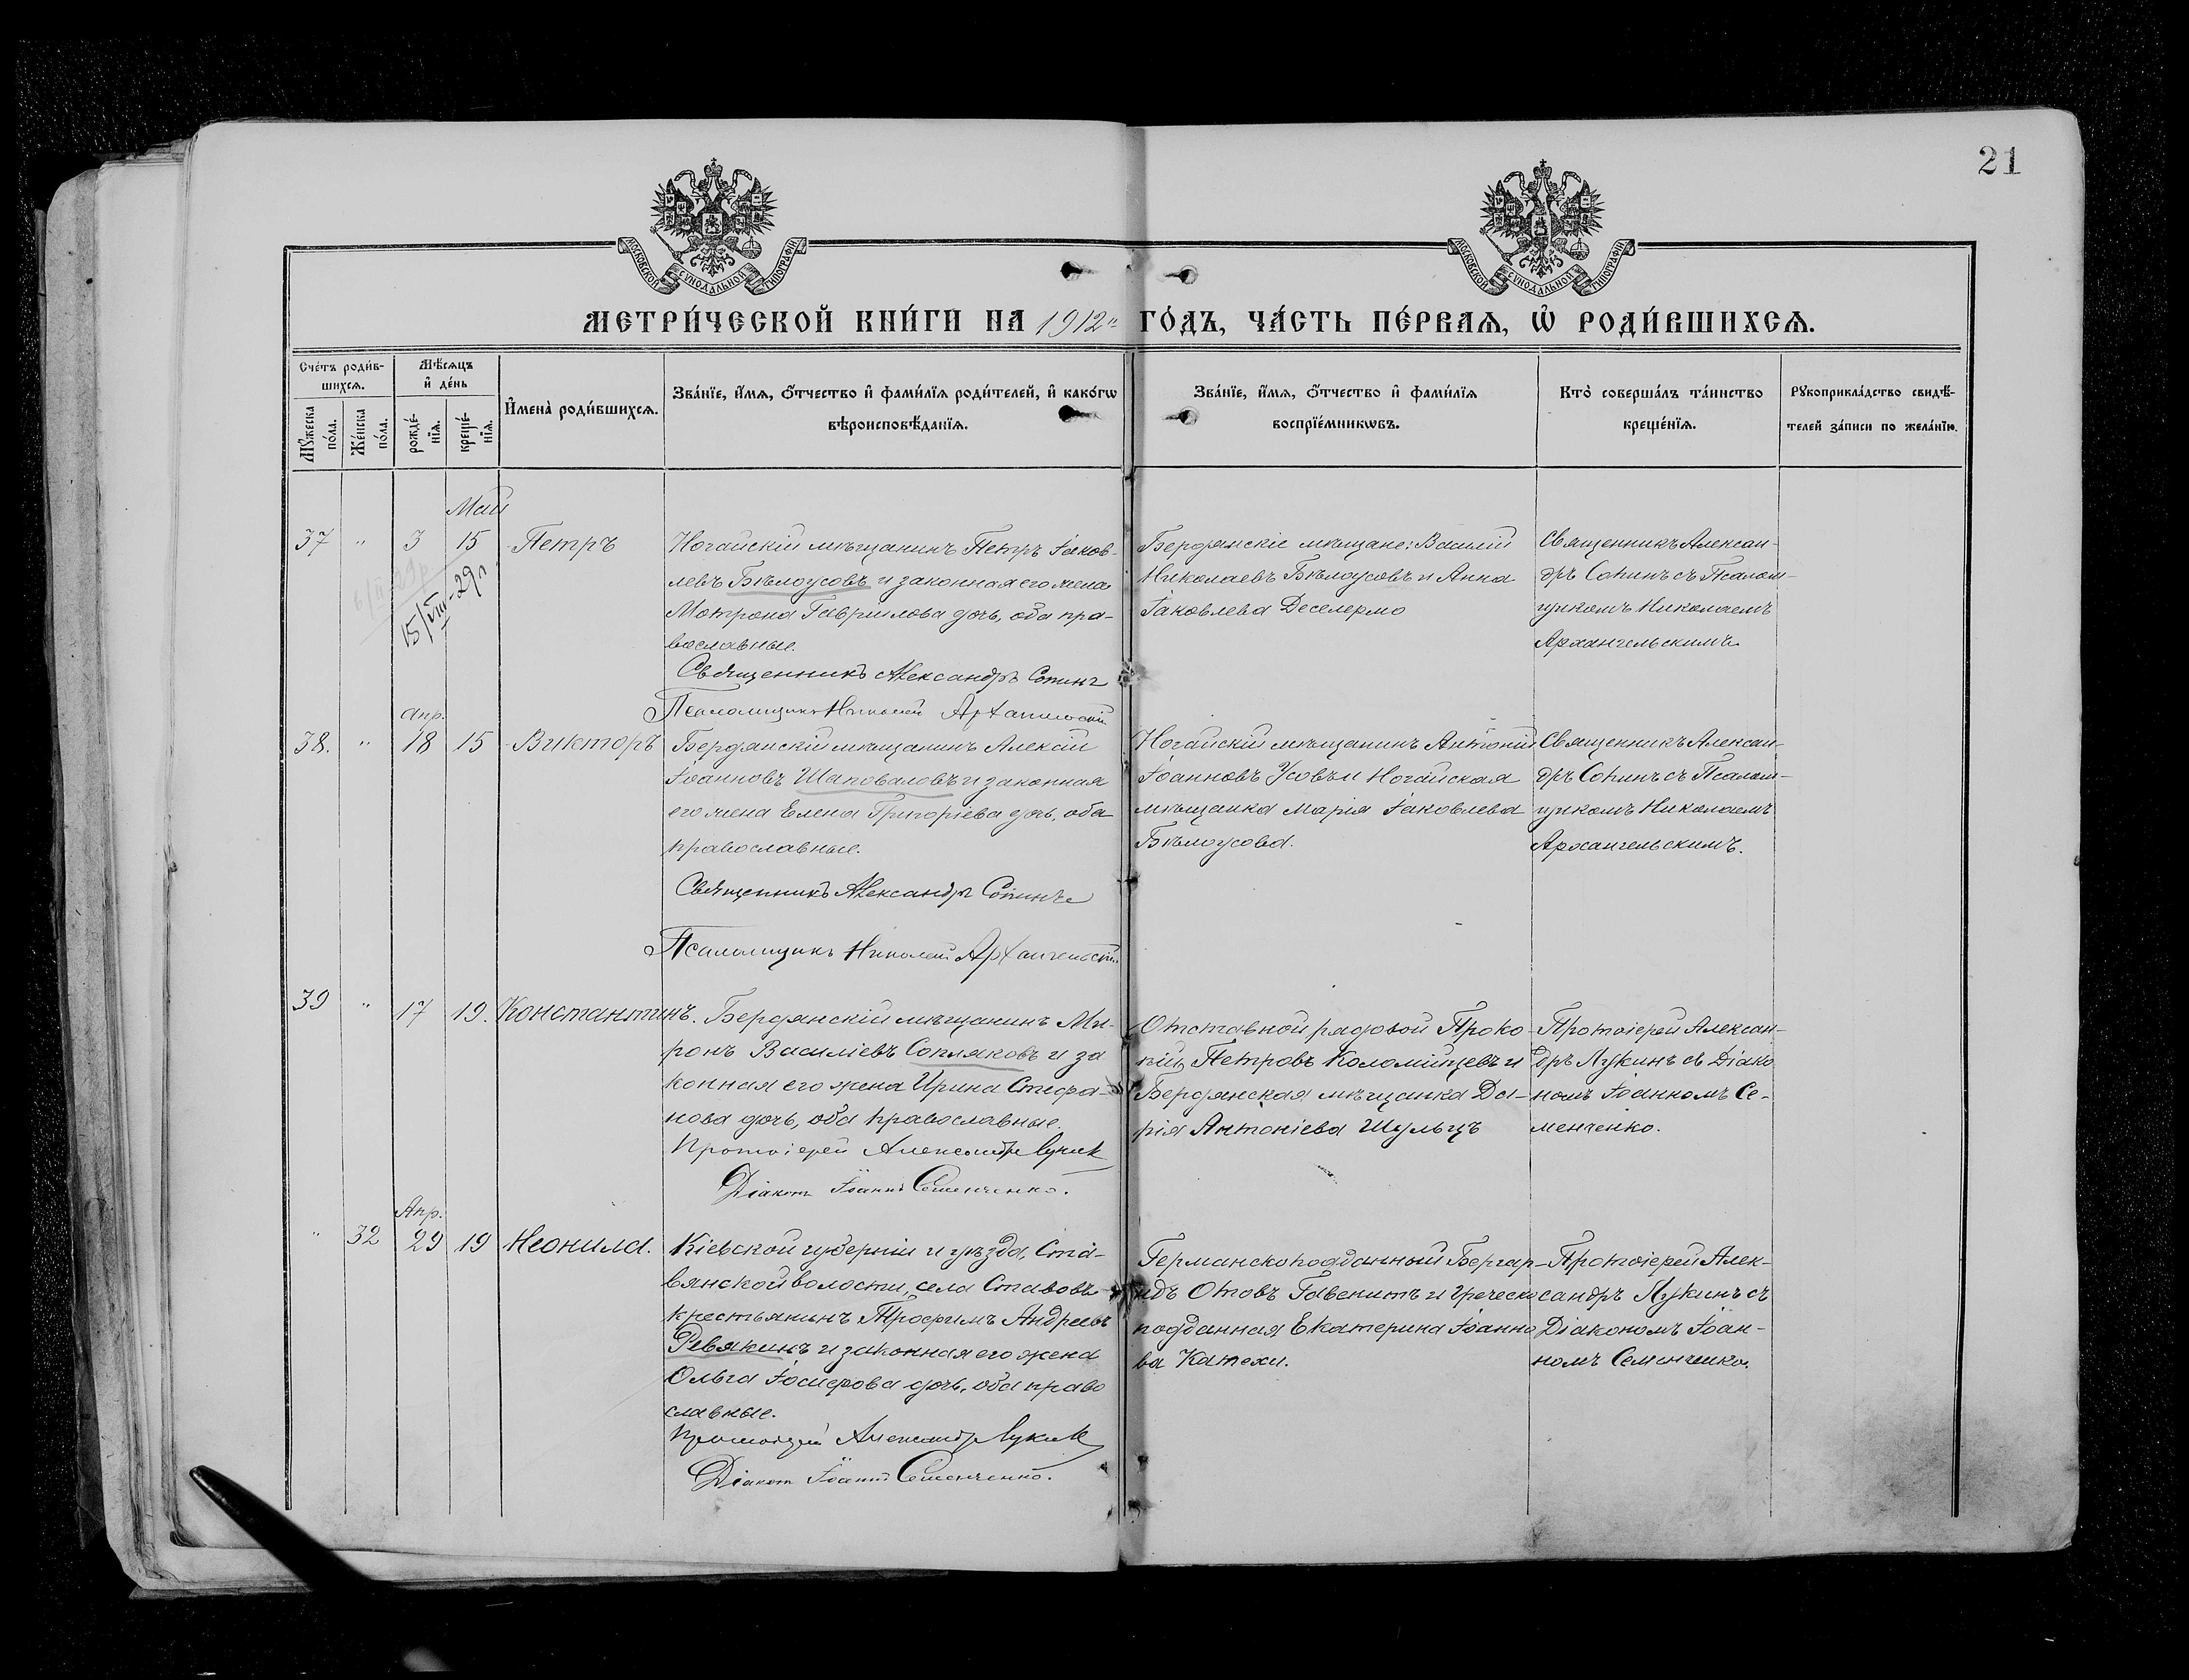 21
МОСКОВСКОЙ СѴНОДАЛЬНОЙ ТИПОГРАФІИ
МОСКОВСКОЙ СѴНОДАЛЬНОЙ ТИПОГРАФІИ
МЕТРИ́ЧЕСКОЙ КНИ́ГИ НА 1912й ГО́ДЪ, ЧА́СТЬ ПЕ́РВАѦ, Ѡ҆ РОДИ́ВШИХСѦ.
Сче́тъ роди́в-
шихсѧ.
Мꙋ́жеска
по́ла.
Же́нска
по́ла.
Мѣ́сѧцъ
и҆ де́нь
рожде́-
нїѧ.
креще́-
нїѧ.
И҆мена̀ роди́вшихсѧ.
Зва́нїе, и҆́мѧ, ѻ҆́тчество и҆ фами́лїѧ роди́телей, и҆ како́гѡ
вѣроисповѣ́данїѧ.
Зва́нїе, и҆́мѧ, ѻ҆́тчество и҆ фами́лїѧ
воспрїе́мникѡвъ.
Кто̀ соверша́лъ та́инство
креще́нїѧ.
Рꙋкоприкла́дство свидѣ́-
телей за́писи по жела́нїю.
Май
37 " 3 15 Петръ
15/VIII-29г.
Ногайскій мѣщанинъ Петръ Іаков-
левъ Бѣлоусовъ и законная его жена
Мотрона Гавриилова дочь, оба пра-
вославные.
Священникъ Александръ Сопинъ
Псаломщикъ Николай Архангельскій
Бердянскіе мѣщане: Василій
Николаевъ Бѣлоусовъ и Анна
Іаковлева Деселермо
Священникъ Алексан-
дръ Сопинъ съ Псалом-
щикомъ Николаемъ
Архангельскимъ.
Апр.
38. " 18 15 Викторъ
Бердянскій мѣщанинъ Алексій
Іоанновъ Шаповаловъ и законная
его жена Елена Григоріева дочь, оба
православные.
Священникъ Александръ Сопинъ
Псаломщикъ Николай Архангельскій.
Ногайскій мѣщанинъ Антоній
Іоанновъ Усовъ и Ногайская
мѣщанка Марія Іаковлева
Бѣлоусова.
Священникъ Алексан-
дръ Сопинъ съ Псалом-
щикомъ Николаемъ
Архангельскимъ.
39 " 17 19. Константинъ.
Бердянскій мѣщанинъ Ми-
ронъ Василіевъ Сопляковъ и за
конная его жена Ирина Стефа-
нова дочь, оба православные.
Протоіерей Александръ Лукинъ
Діаконъ Іоаннъ Семенченко.
Отставной рядовой Проко-
пій Петровъ Коломійцевъ и
Бердянская мѣщанка Да-
рія Антоніева Шульцъ
Протоіерей Алексан-
дръ Лукинъ съ Діако
номъ Іоанномъ Се-
менченко.
Апр.
" 32 29 19 Неонила.
Кіевской губерніи и уѣзда, Ста-
вянской волости, села Ставовъ
крестьянинъ Трофимъ Андреевъ
Ревякинъ и законная его жена
Ольга Іосифова дочь, оба право
славные.
Протоіерей Александръ Лукинъ
Діаконъ Іоаннъ Семенченко.
Германскоподданный Бергар-
дъ Отовъ Гавенитъ и Греческо
подданная Екатерина Іоанно
ва Катехи.
Протоіерей Алек-
сандръ Лукинъ съ
Діакономъ Іоан-
номъ Семенченко.